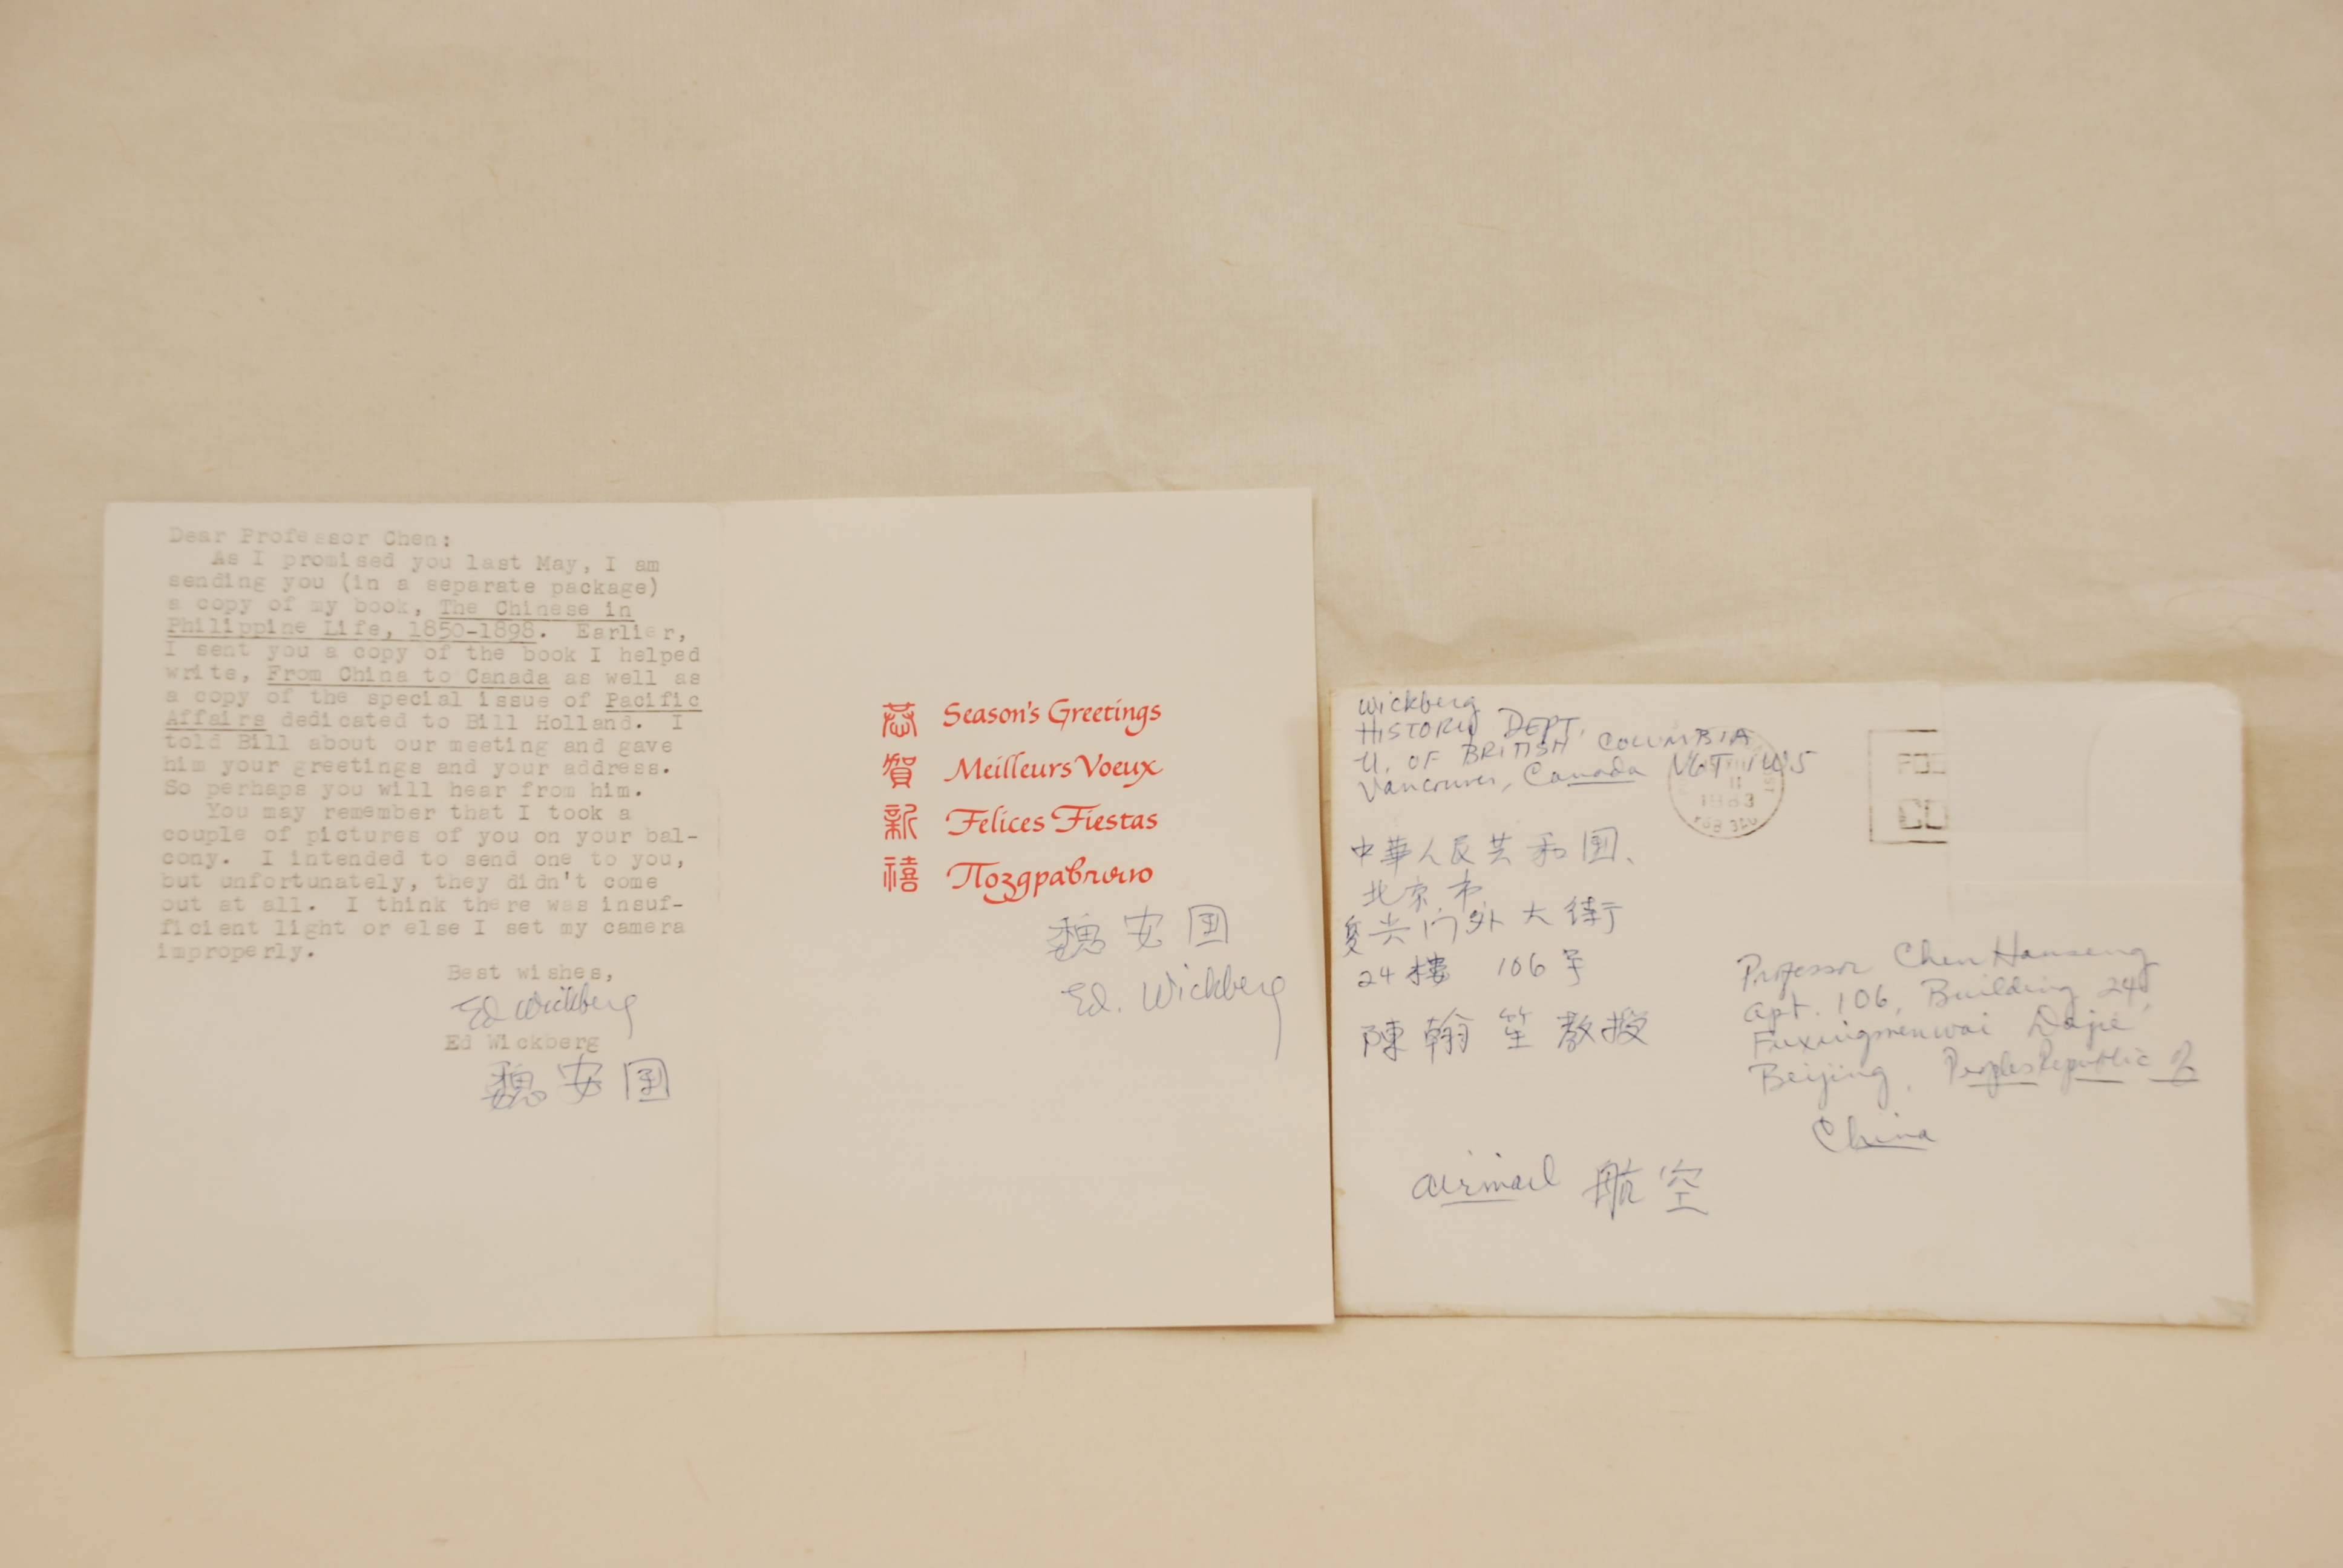 Dear Professor Chen:
As I promised you last May, I am
sending you (in a separate package)
a copy of my book, The Chinese in
Philippine Life, 1850-1898. Earlier,
I sent you a copy of the book I helped
write, From China to Canada as well as
a copy of the special issue of Pacific
Affairs dedicated to Bill Holland. I
told Bill about our meeting and gave
him your greetings and your address.
So perhaps you will hear from him.
You may remember that I took a
couple of pictures of you on your bal-
cony. I intended to send one to you,
but unfortunately, they didn't come
out at all. I think there was insuf-
ficient light or else I set my camera
improperly.
Best wishes,
Ed Wickberg
Ed Wickberg
魏安国
恭賀新禧
Season's Greetings
Meilleurs Voeux
Felices Fiestas
Поздравляю
魏安国
Ed. Wickberg
Wickberg
HISTORY DEPT.
U. OF BRITISH COLUMBIA
Vancouver, Canada V6T 1W5
11
1983
中華人民共和国、
北京市
复兴门外大街
24楼 106号
陳翰笙教授
Professor Chen Hanseng
Apt. 106, Building 24,
Fuxingmenwai Dajie
Beijing, Peoples Republic of
China
airmail 航空